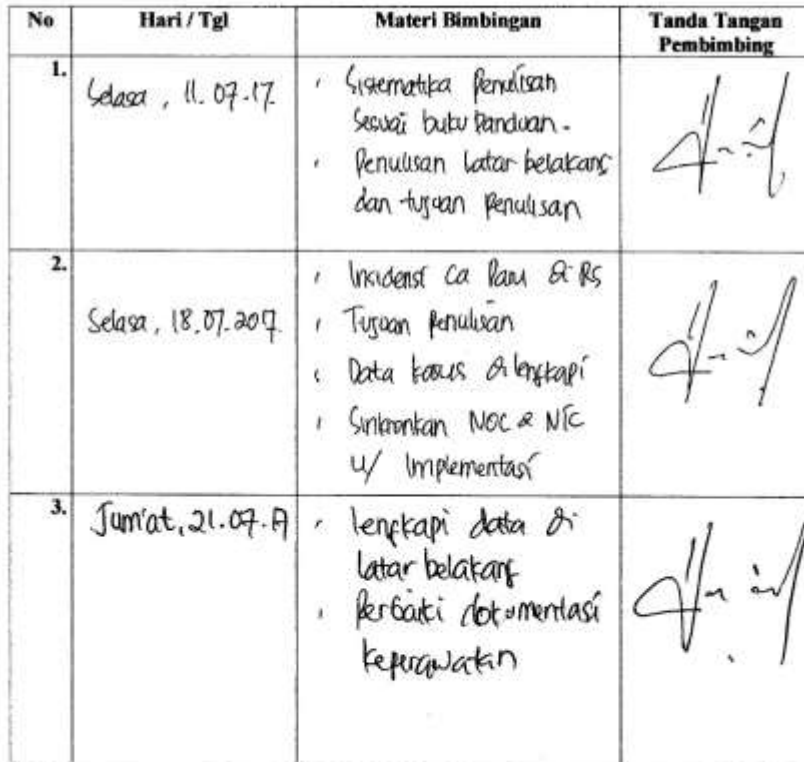 No Hari / Tgl Materi Bimbingan Tanda Tangan
Pembimbing
1. Selasa, 11.07.17. Sistematika Penulisan
Sesuai buku Panduan.
Penulisan latar belakang
dan tujuan penulisan
2. Insidensi Ca Paru di RS
Selasa, 18.07.2017. Tujuan Penulisan
Data kasus dilengkapi
Sinkronkan NOC & NIC
u/ Implementasi
3. Jum'at, 21.07.17 lengkapi data di
latar belakang
Perbaiki dokumentasi
keperawatan